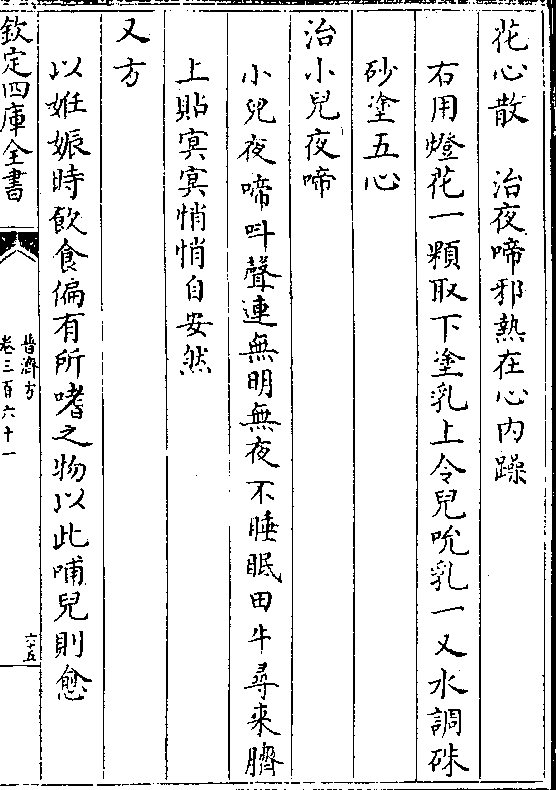 花心散　治夜啼邪熱在心内躁
右用燈花一顆取下塗乳上令兒吮乳一又水調硃
砂塗五心
治小兒夜啼
小兒夜啼呌聲連無明無夜不睡眠田牛尋來臍
上貼寞寞悄悄自安然
又方
以姙娠時飲食偏有所嗜之物以此哺兒則愈
欽定四庫全書
普濟方
卷三百六十一
六十五